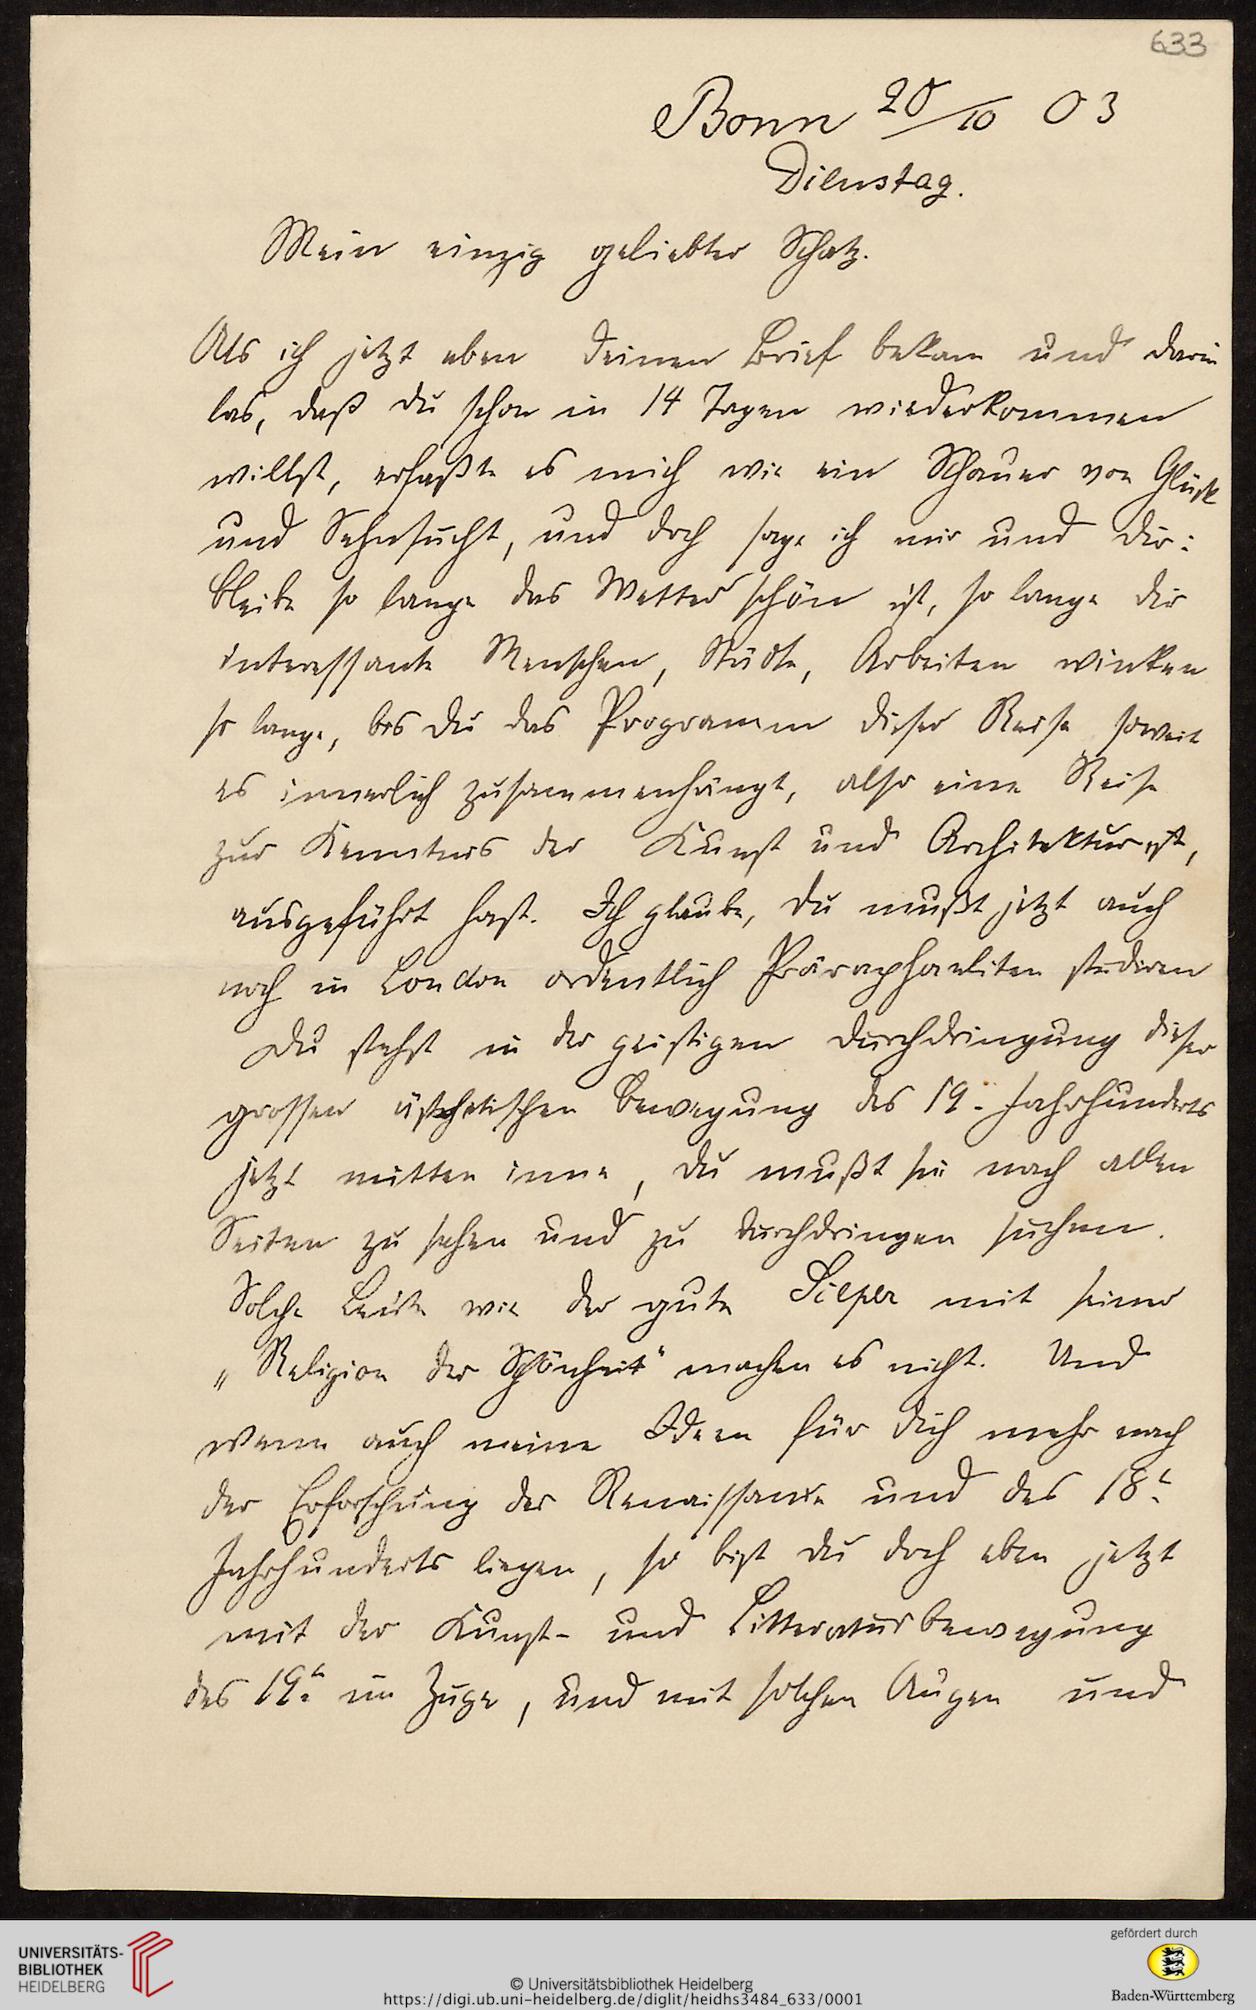 633
Bonn 20/10 03
Dienstag.
Mein einzig geliebter Schatz.
Als ich jetzt eben Deinen Brief bekam und darin
las, daß Du schon in 14 Tagen wiederkommen
willst, erfaßte es mich wie ein Schauer von Glück
und Sehnsucht, und doch sage ich mir und Dir:
bleibe so lange das Wetter schön ist, so lange Dir
interessante Menschen, Städte, Arbeiten winken
so lange, bis Du das Programm dieser Reise, soweit
es innerlich zusammenhängt, also eine Reise
zur Kenntnis der Kunst und Architektur ist,
ausgeführt hast. Ich glaube, Du mußt jetzt auch
noch in London ordentlich Präraphaeliten studiren
Du stehst in der geistigen Durchdringung dieser
grossen ästhetischen Bewegung des 19. Jahrhunderts
jetzt mitten inne, Du mußt sie nach allen
Seiten zu sehen und zu durchdringen suchen.
Solche Leute wie der gute mit seiner
„Religion der Schönheit" machen es nicht. Und
wenn auch meine Ideen für Dich mehr nach
der Erforschung der Renaissance und des 18t.
Jahrhunderts liegen, so bist Du doch eben jetzt
mit der Kunst- und Litteraturbewegung
des 19t. im Zuge, und mit solchen Augen und
UNIVERSITÄTS-
BIBLIOTHEK
HEIDELBERG
© Universitätsbibliothek Heidelberg
https://digi.ub.uni-heidelberg.de/diglit/heidhs3484_633/0001
gefördert durch
Baden-Württemberg